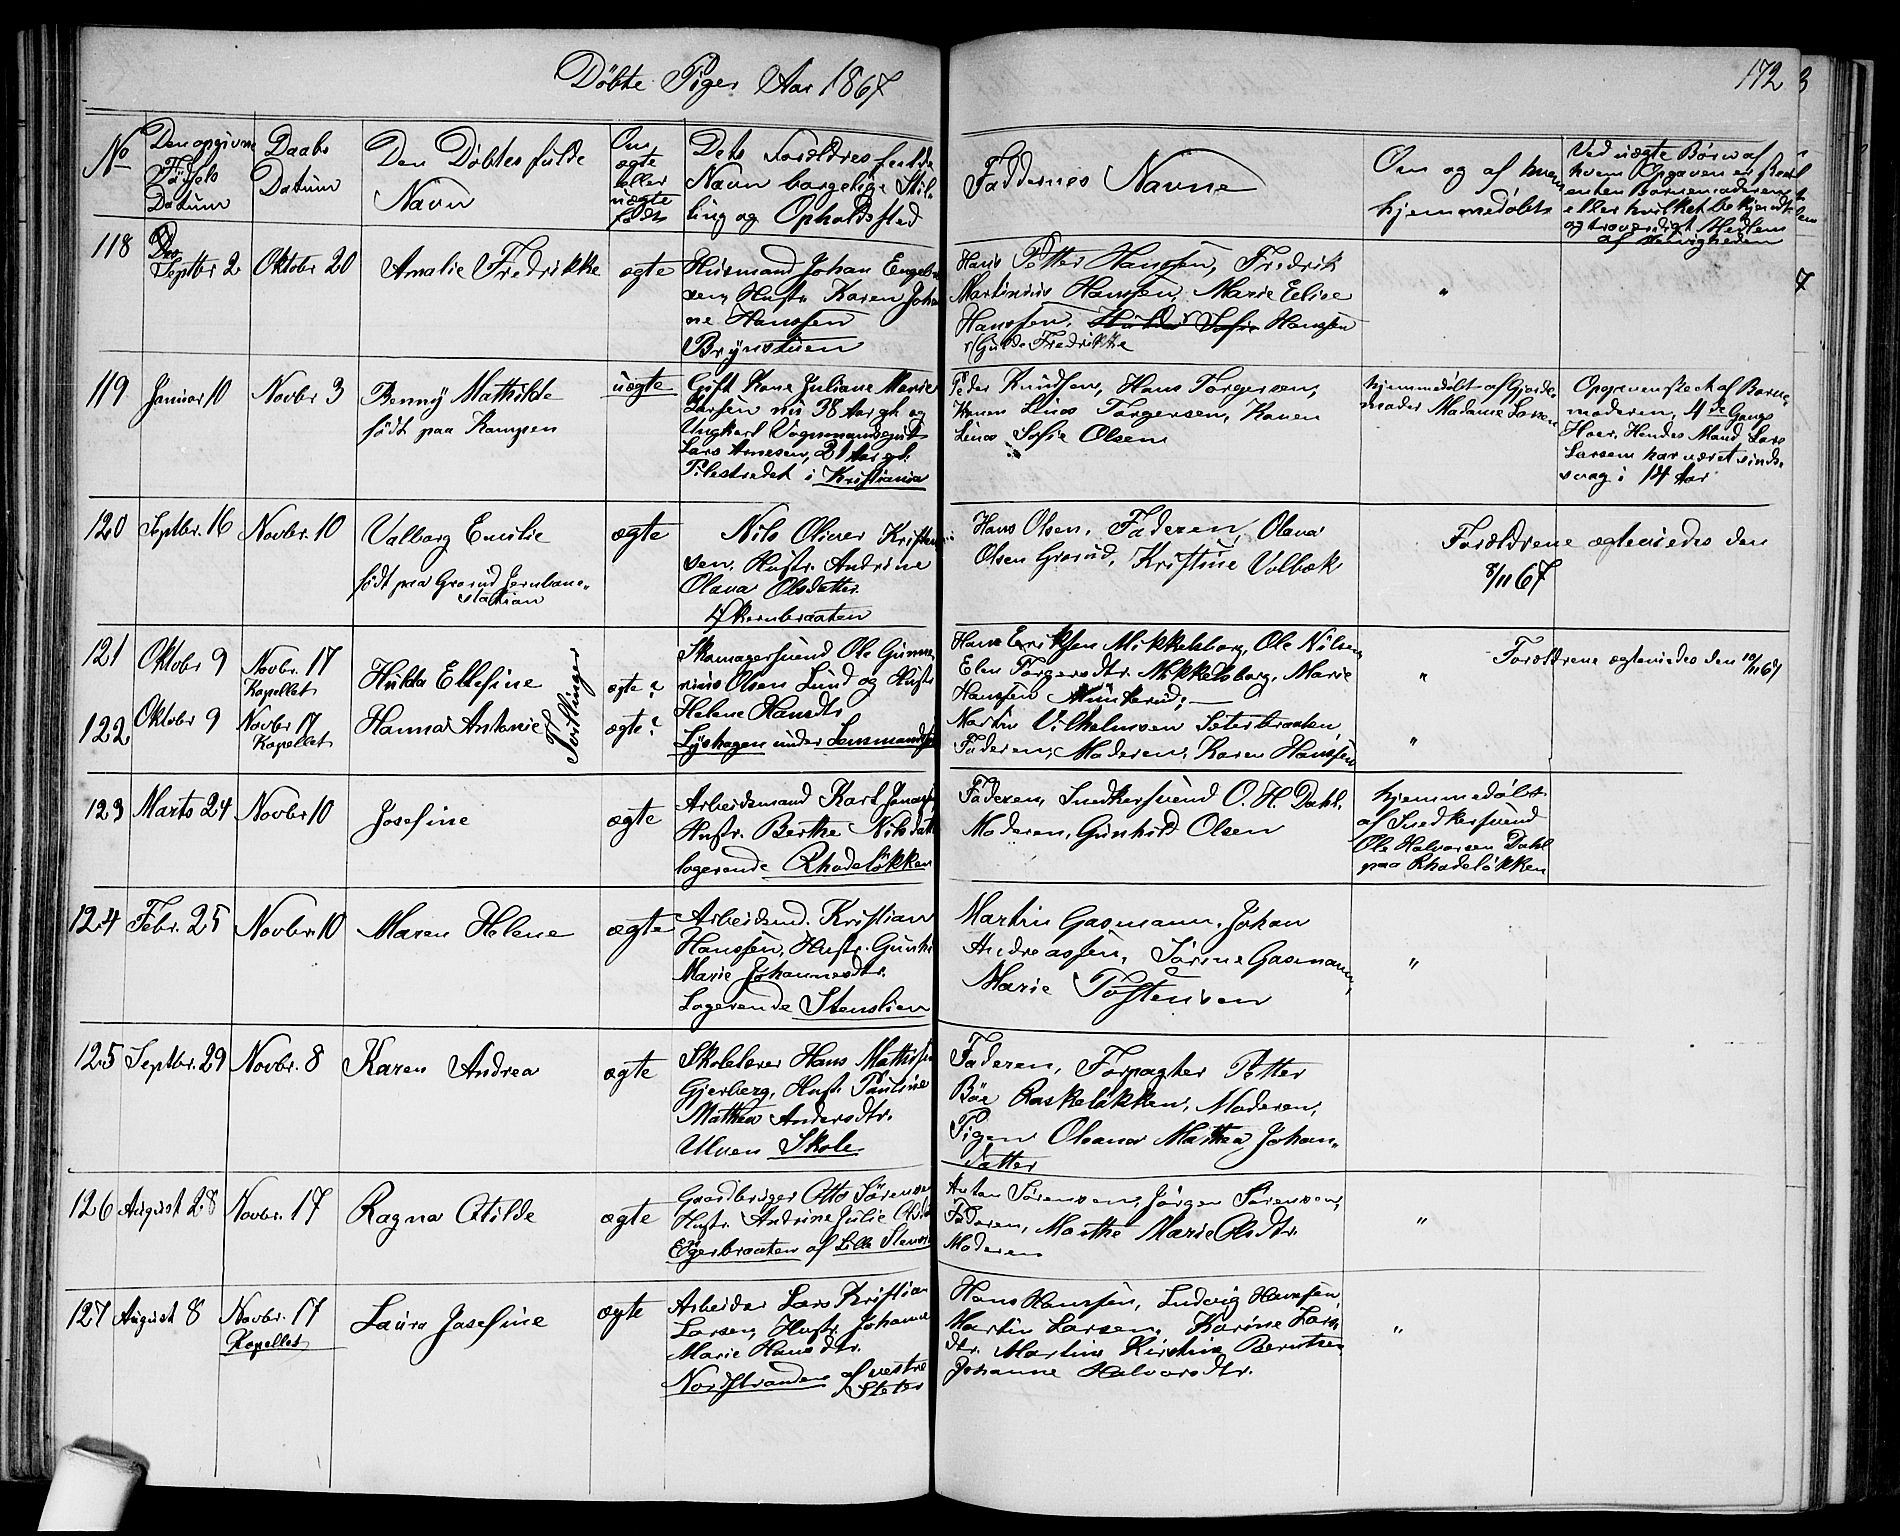 Döbte Piger Aar 1867
172
No
Den opgivne Födsels Datum
Daabs Datum
Den Döbtes fulde Navn
Om ægte eller uægte födt
Dets Forældres fulde Navn borgelige Stilling og Opholdssted
Faddernes Navne
Om og af hvem hjemmedöbt
Ved uægte Börn af hvem Opgaven er
enten Barnemoderen
eller hvilket bekjendt
og troværdigt Medlem
af Menigheden
118
Septbr 2
Oktober 20
Amalie Fredrikke
ægte
Husmand Johan Engeb
sen, Hustr. Karen Joha
ne Hanssen
Brynstuen
Hans Petter Hanssen, Fredrik
Martinius Hanssen, Marie Elise
Hanssen, Hulda Sofie Hanssen
Gulde Fredrikke
"
119
Januar 10
Novbr 3
Benny Mathilde
födt paa Kampen
uægte
Gift Kone Juliane Marie
Larsen nu 38 Aar gl. og
Ungkarl Vognmandsgut
Lars Arnesen, 21 Aar gl.
Pilestrædet i Kristiania
Peder Knudsen, Hans Torgersen,
Konen Lina Torgersen, Konen
Lina Sofie Olsen
hjemmedöbt af Gjorde-
moder Madame Larsen
Opgaven skeet af Barne-
moderen, 4de Gangs
Hoer. Hendes Mand Lars
Larsen har været sinds-
svag i 14 Aar
120
Septbr. 16
Novbr. 10
Valborg Emilie
födt paa Grorud Jernbane-
station
ægte
Nils Oliver Kristen
sen, Hustr. Andrine
Olava Olsdatter
Økernbraaten
Hans Olsen, Faderen, Olava
Olsen Grorud, Kristine Volbæk
Forældrene ægteviedes den
8/11 67
121
Oktober 9
Novbr. 17
Kapellet
Hulda Ellefine
ægte?
Tvillinger
Skomagersvend Ole Gunne
rius Olsen Lund og Hustr
Helene Hansdtr.
Lyshagen under Lensmands
Hans Eriksen Mikkelsborg, Ole Nilsen
Elen Torgersdtr. Mikkelsborg, Marie
Hanssen Munkerud;
"
Forældrene ægteviedes den 10/11 67
122
Oktober 9
Novbr 17
Kapellet
Hanna Antonie
ægte?
Martin Vilhelmsen Seterbraaten,
Faderen, Moderen, Karen Hanssen
"
123
Marts 24
Novbr 10
Josefine
ægte
Arbeidsmand Karl
Hustr. Berthe Nilsdatt
logerende Rhodeløkken
Faderen, Snedkersvend O. H. Dahl.
Moderen, Gunhild Olsen
hjemmedöbt
af Snedkersvend
Ole Halvorsen Dahl
paa Rhodelökken
124
Febr. 25
Novbr. 10
Maren Helene
ægte
Arbeidsmd. Kristian
Hanssen, Hustr. Gunhi
Marie Johannesdtr.
Logerende Stenslien
Martin Gasmann, Johan
Andreassen, Sörine Gasmann,
Marie Tostensen
"
125
Septbr. 29
Novbr. 8
Karen Andrea
ægte
Skolelærer Hans Mathisen
Gjerberg, Hustr. Pauline
Mathea Andersdtr.
Ulven Skole
Faderen, Forpagter Petter
Böe Raskelökken, Moderen,
Pigen Oleana Mathea Johans-
datter
126
August 28
Novbr. 17
Ragna Otilde
ægte
Gaardbruger Otto Sörensen
Hustr. Andrine Julie
Egerbraaten af Lille Stensr
Anton Sörensen, Jörgen Sörensen,
Faderen, Marthe Marie Olsdtr.
Moderen
"
127
August 8
Novbr. 17
Kapellet
Laura Josefine
ægte
Arbeider Lars Kristian
Larsen, Hustr. Johanne
Marie Hansdtr.
Nordstranden af vestre
Hans Hanssen, Ludvig Hanssen
Martin Larsen, Karine Lars
dtr. Martine Kirstine Berntsen
Johanne Halvorsdtr.
"